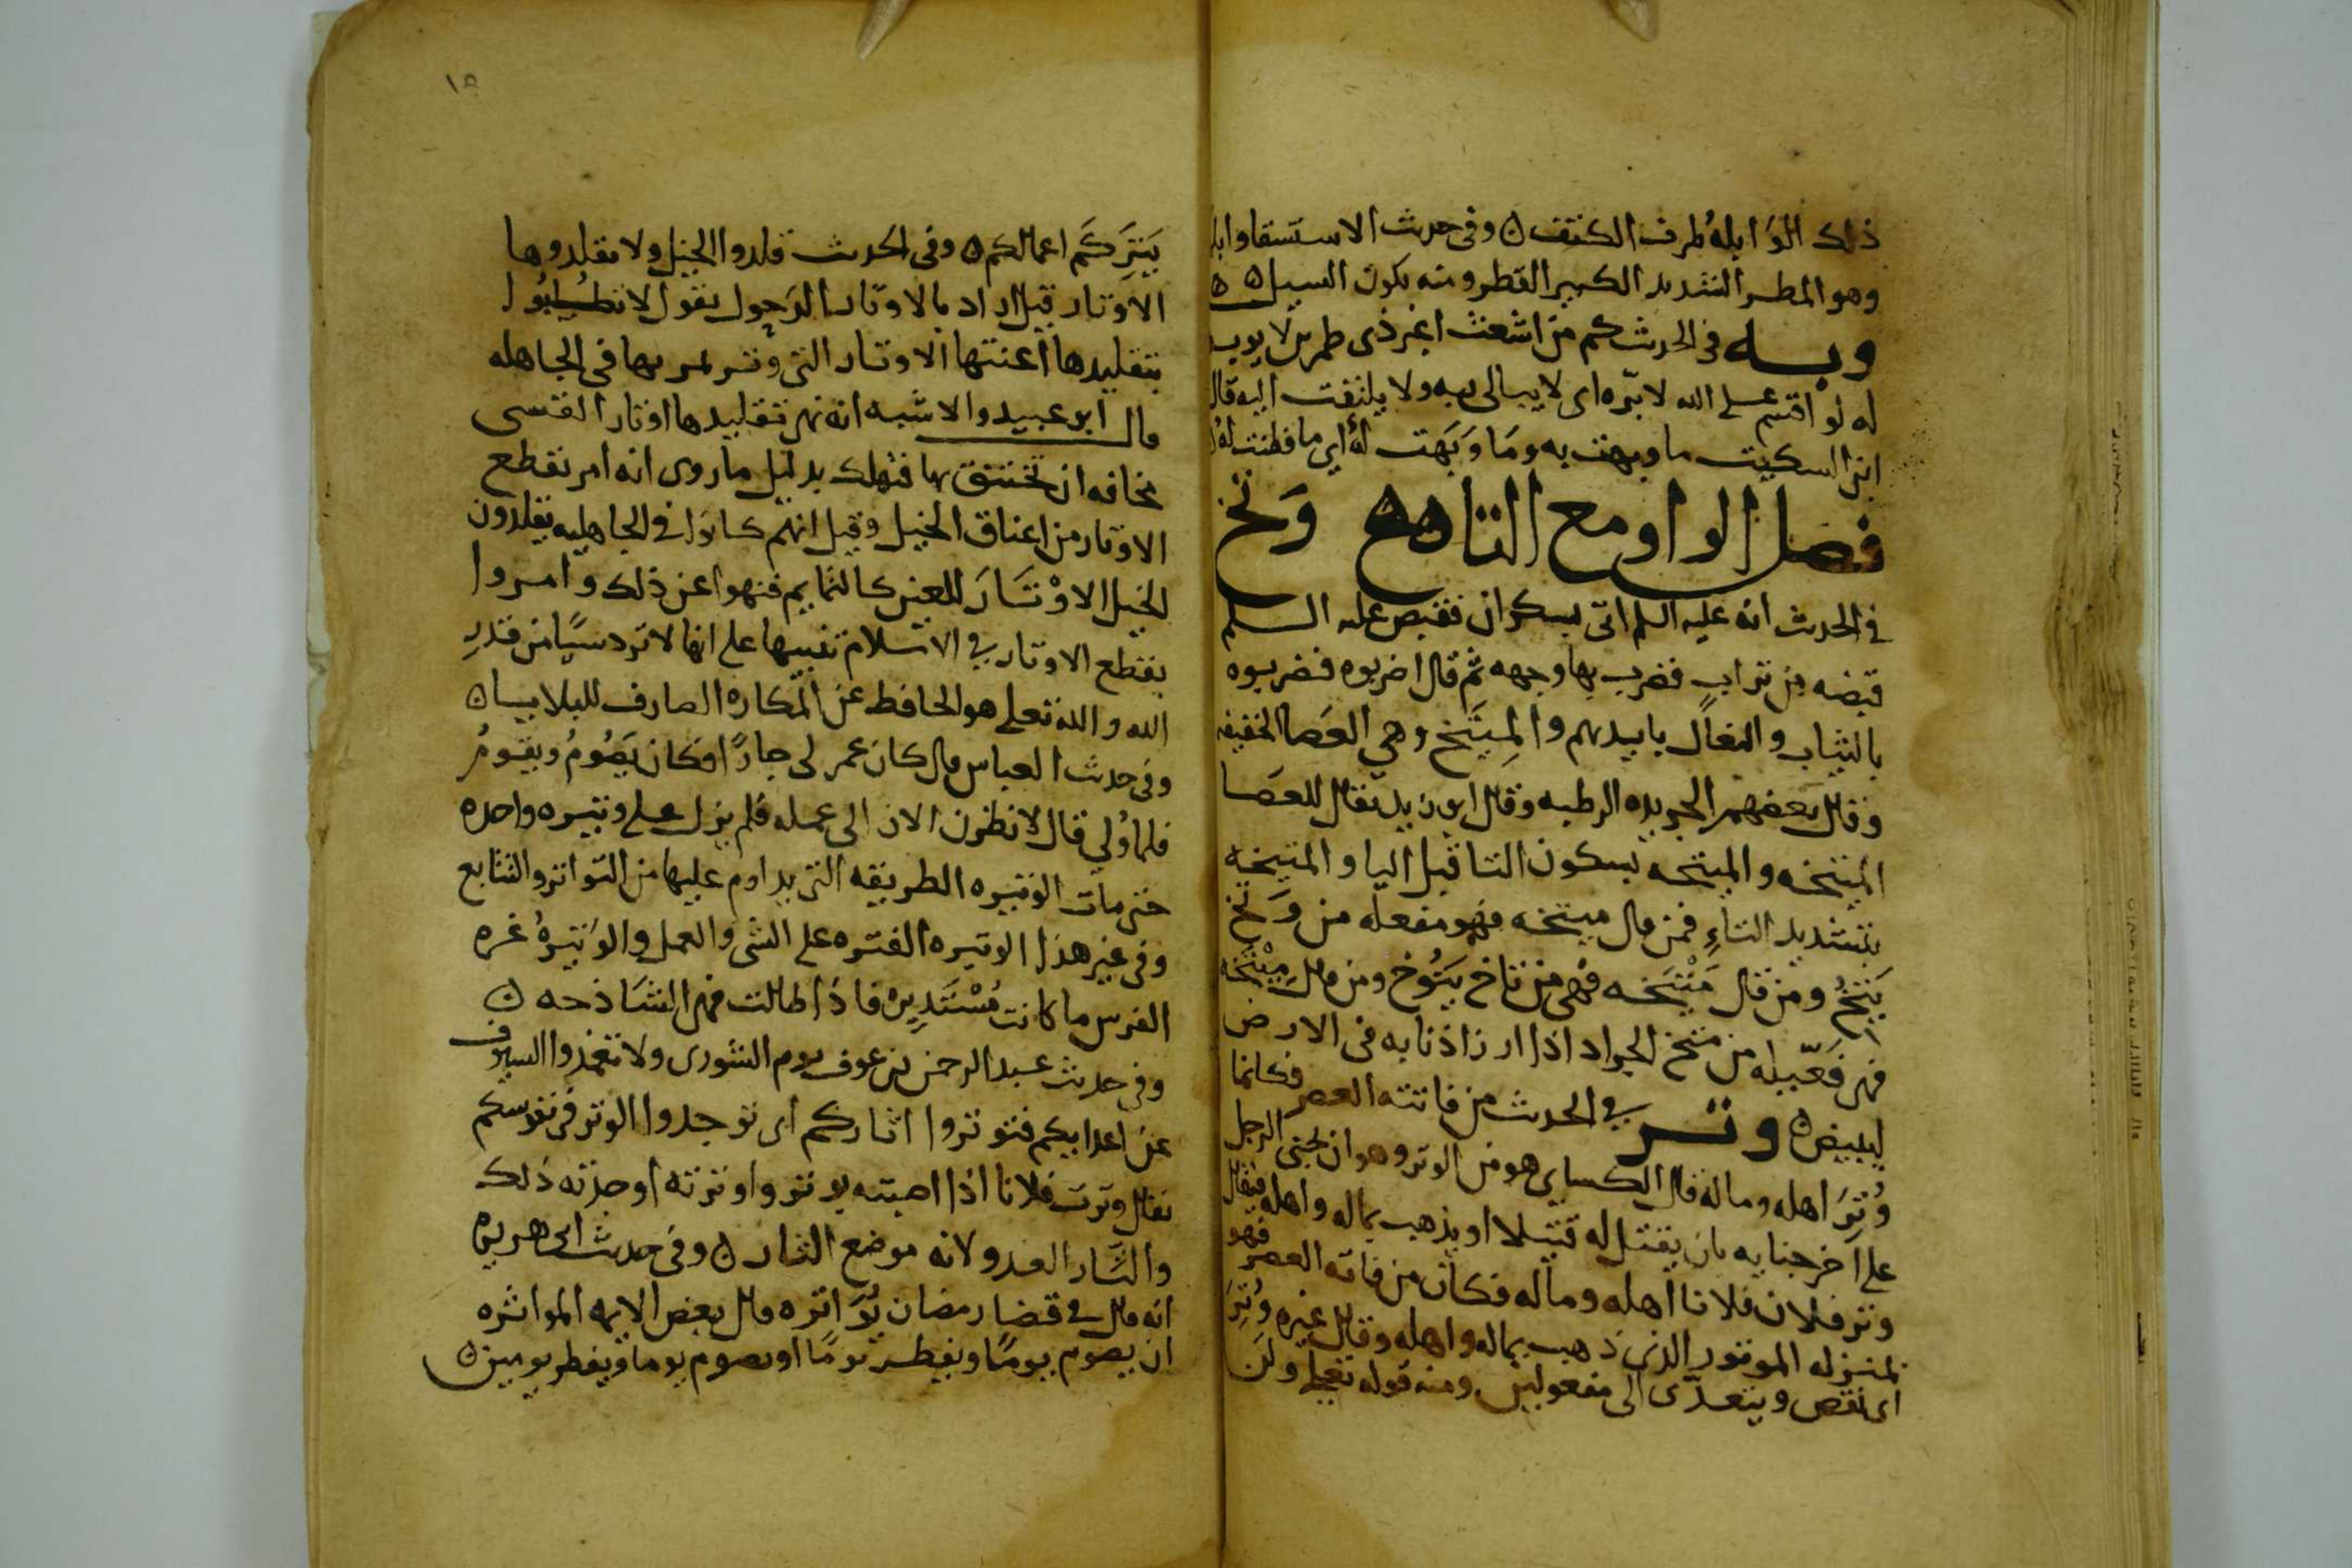 ذلك الوَابلهُ طرف الكتف ن وفى حديث الاستسقا وابلا
وهو المطر الشديد الكبير القطر ومنه يكون السيل ه ه
وبـه فى الحديث كم من اشعث اغبر ذى طمرين لا يوبه
له لو اقسم على الله لابرّه اى لا يبالى به ولا يلتفت اليه قال
ابن السكيت ما وبهت به ومَا وَبَهت لهُ اى ما فطنت لهُ
فصل الواو مع التا هه وَتخ
فى الحديث انه عليه السلم اتى بسكران فقبص عليه السلم
قبضه من تراب فضرب بها وجهه ثم قال اضربوه فضربوه
بالثياب والنعال بايديهم والمِيتَخ وهي العَصا الخفيفه
وقال بَعضهم الجريده الرطبه وقال ابو زيد يقال للعَصَا
المِتيخه والميتخه بسكون التا قبل اليا والمتيخه
بتشديد التاءِ فمن قال ميتخه فهو مفعله من وَتخ
يَتِخُ ومن قال مَتْيَخه فهى من تاخ يَتوُخ ومن قال مِتيْخَه
فهى فَعّيله من متخ الجراد اذا ارز اذنابه فى الارض
ليبيض ن وتـر في الحديث من فاتته العصر فكانما
وُتِرَ اهله وماله قال الكساي هو من الوتر وهو ان يجنى الرجل
على اخر جنايه بان يقتل له قتيلا او يذهب بماله واهله فيقال
وتر فلان فلانا اهله وماله فكان من فاته العصر فهو
بمنزله الموتور الذى ذهب بماله واهله وقال غيره وُتِرَ
اى نقص ويتعدّى الى مفعولين ومنه قوله تعلى ولن
١٥
يَتِرَكُم اعمالكم ن وفى الحديث قلدوا الخيل ولا تقلدوها
الاوتار قيل اراد بالاوتار الدَحول يقول لا تطلبُوا
بتقليدها اعنتها الاوتار التى وتر تم بها فى الجاهله
قال ابو عبيد والاشبه انه نهى تقليدها اوتار القسى
مخافه ان تختنق بها فتهلك بدليل ما روى انه امر بقطع
الاوتار من اعناق الخيل وقيل انهم كانوا فى الجاهليه يقلدون
الخيل الاوْتَارَ للعين كالتمايم فنهوا عن ذلك وامروا
بقطع الاوتار في الاسلام تنبيها على انها لا ترد شيًا من قدرِ
الله والله تعلى هو الحافظ عن المكاره الصارف للبلايا ن
وفى حديث العباس قال كان عمر لى جارًا فكان يَصُومُ ويقومُ
فلما وُلي قال لانظرن الان الى عمله فلم يزل على وتيره واحده
حتى مات الوتيره الطريقه التى يداوم عليها من التواتر والتتابع
وفى غير هذا الوتيره الفتره على الشى والعمل والوَتيَرهُ غره
الفرس ما كانت مُسْتَديره فاذا طالت فهى الشَاذخه ن
وفى حديث عبد الرحمن بن عوف يوم الشورى ولا تغمدوا السيوف
عن اعدايكم فتوتروا اثاركم اى توجدوا الوتر فى نفوسكم
يقال وترت فلانا اذا اصبته بوتر واوترته اوجدته ذلك
والثَّار العدو لانه موضع الثار ن وفى حديث ابى هريره
انه قال فى قضا رمضان يُوَاتره قال بعض الايمه المواتره
ان يصوم يومًا ويفطر يومًا او يصوم يوما ويفطر يومين ن